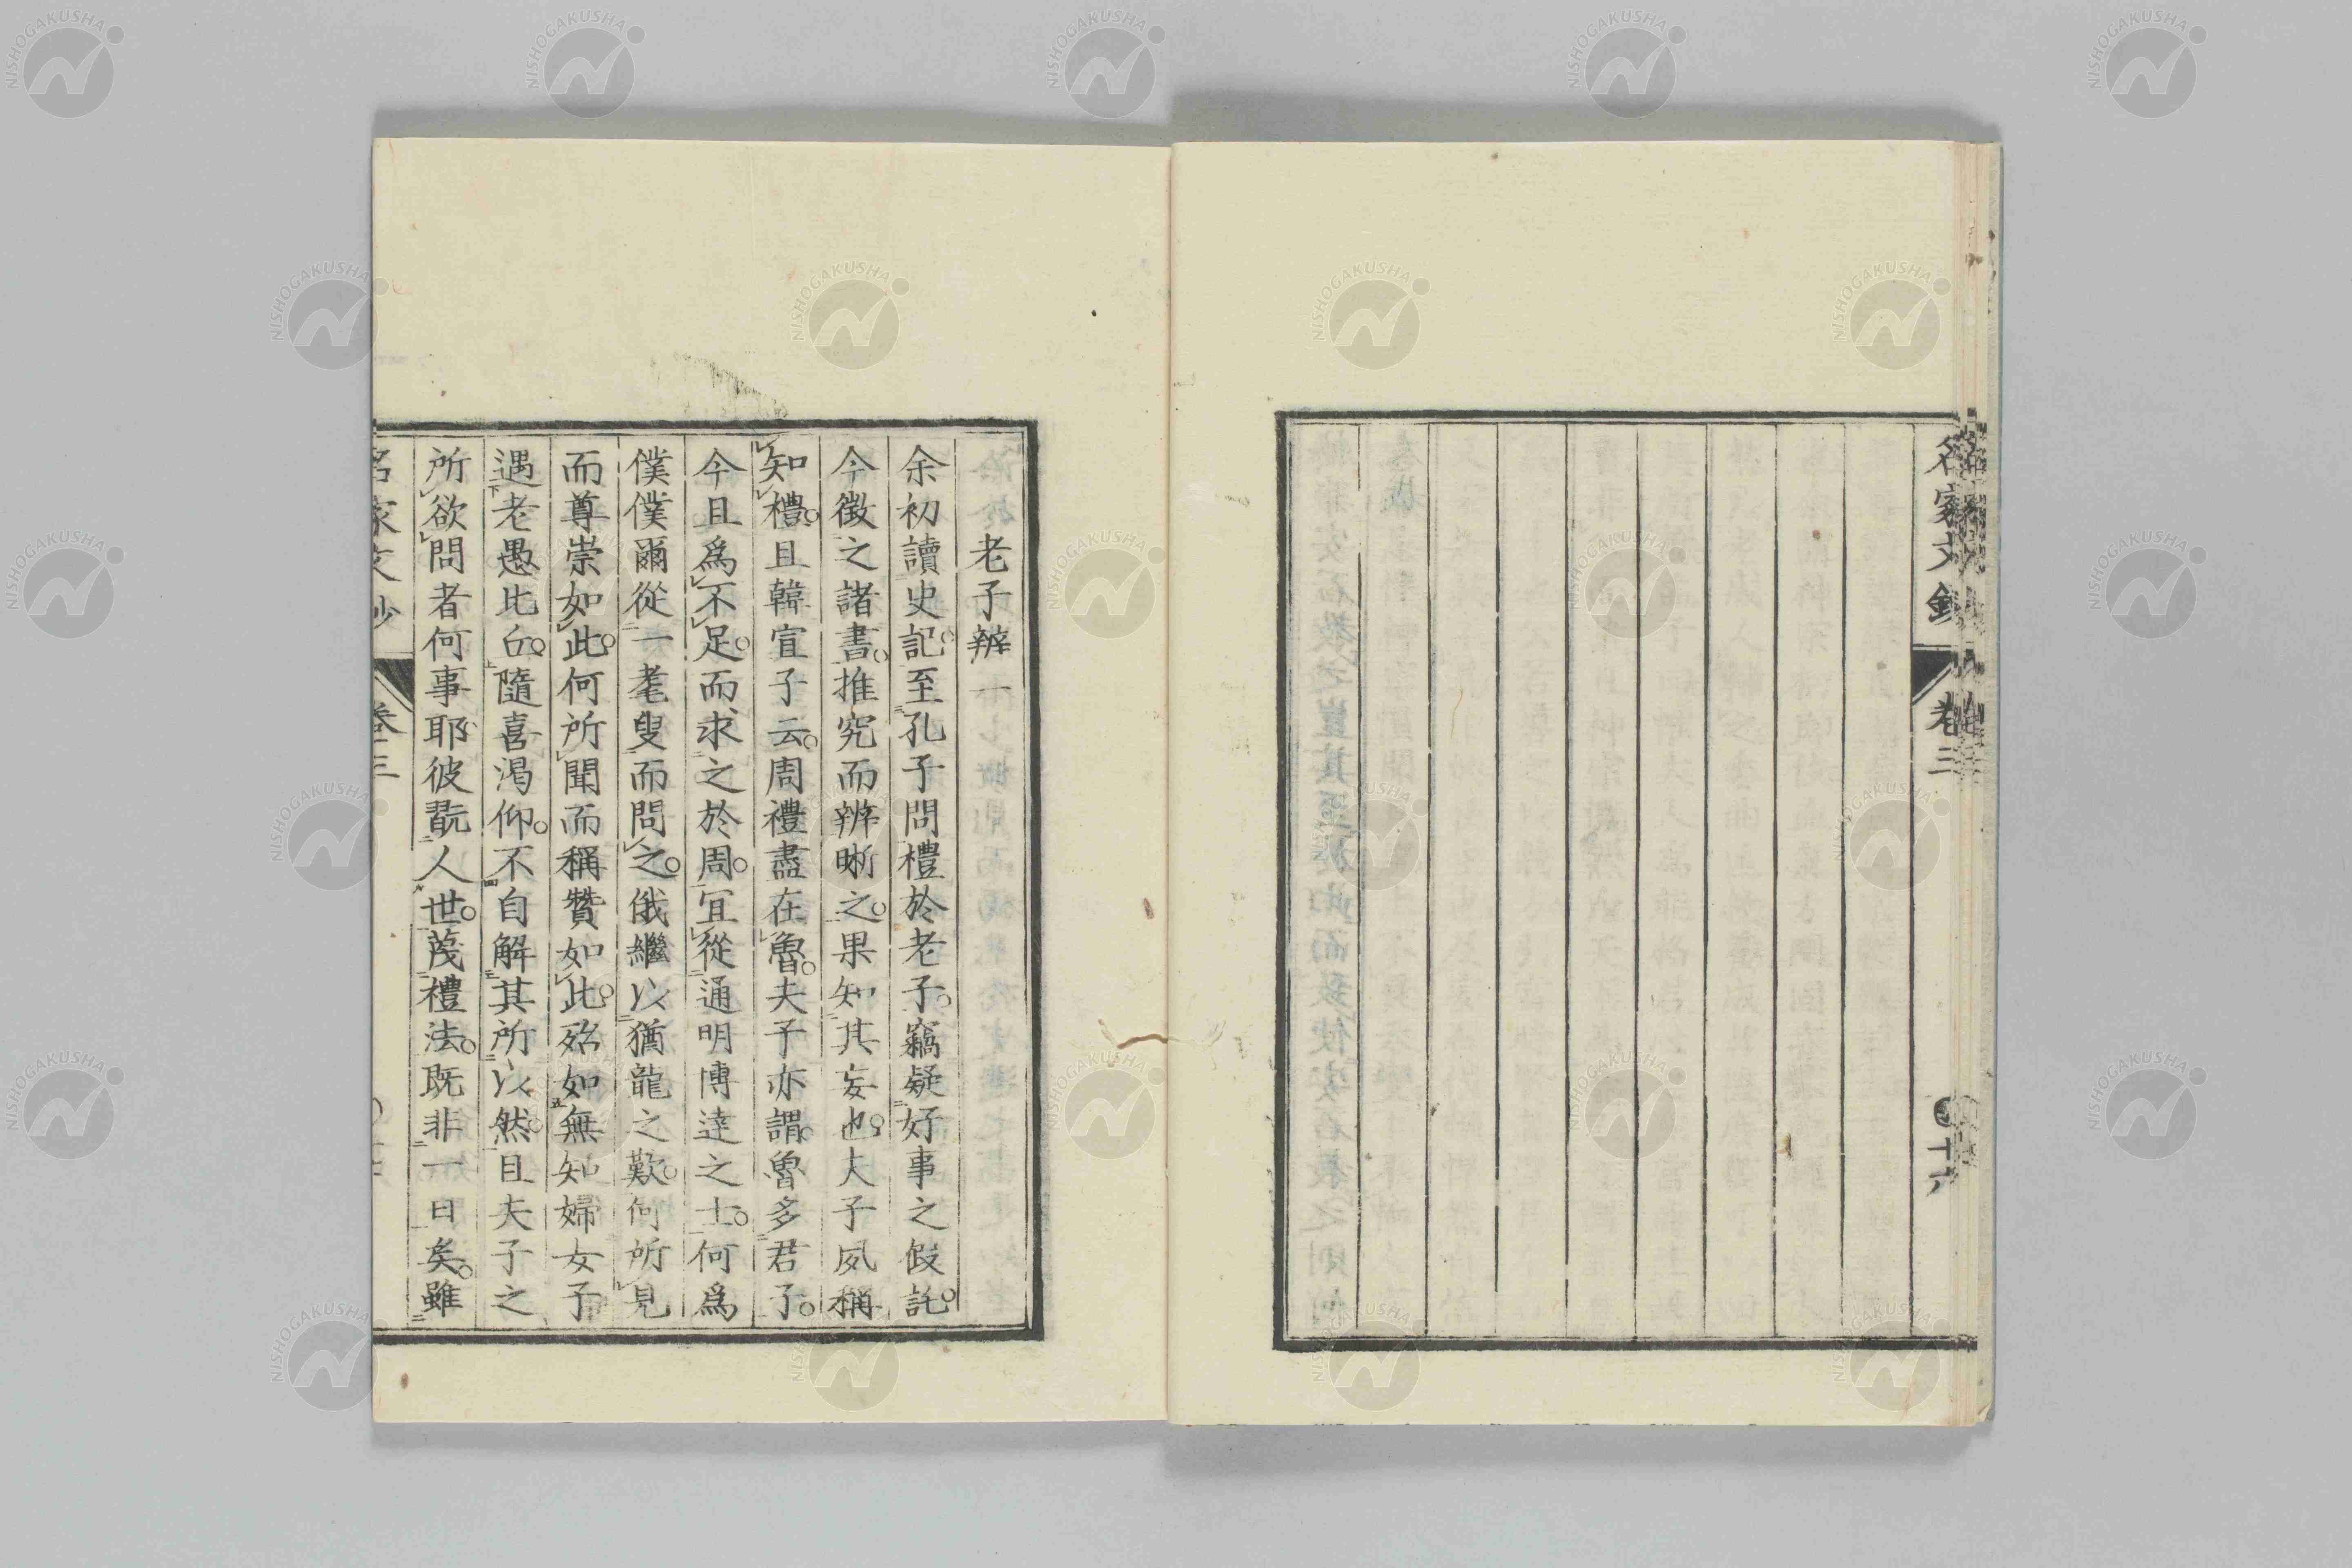 名家文鈔
卷三
四十六
老子辨
余初讀史記至孔子問禮於老子竊疑好事之假託
今徵之諸書推究而辨晰之果知其妄也夫子夙稱
知禮且韓宣子云周禮盡在魯夫子亦謂魯多君子
今且爲不足而求之於周宜從通明博達之士何爲
僕僕爾從一耄叟而問之俄繼以猶龍之歎何所見
而尊崇如此何所聞而稱贊如此殆如無知婦女子
遇老愚比丘隨喜渴仰不自解其所以然且夫子之
所欲問者何事耶彼翫人世蔑禮法既非一日矣雖
名家文鈔
卷三
NISHOGAKUSHA